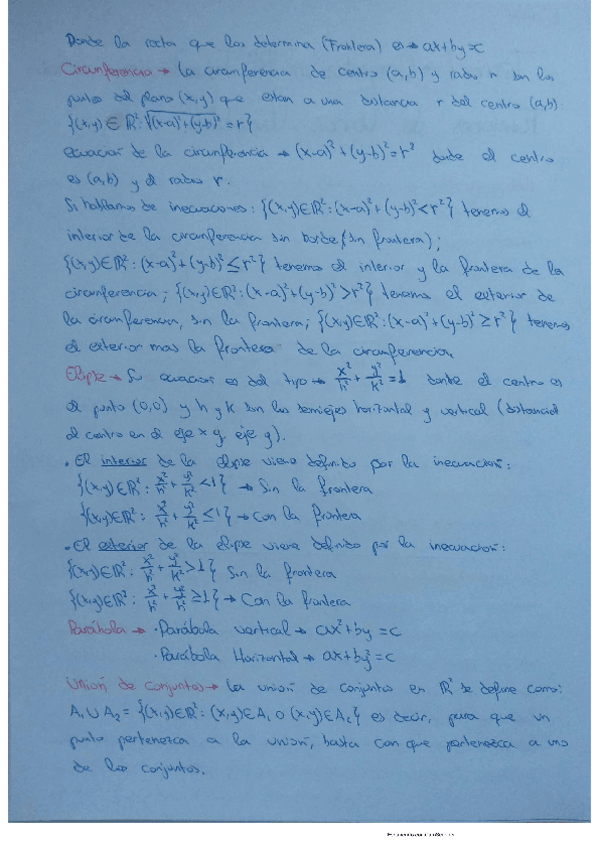 Donde la recta que los determina (Frontera) es → ax+by=c
Circunferencia → La circunferencia de centro (a,b) y radio r son los
puntos del plano (x,y) que estan a una distancia r del centro (a,b)
{(x,y) ∈ ℝ²: √(x-a)²+(y-b)² = r}
ecuación de la circunferencia → (x-a)²+(y-b)²=r² donde el centro
es (a,b) y el radio r.
Si hablamos de inecuaciones: {(x,y)∈ℝ²:(x-a)²+(y-b)²<r²} tenemos el
interior de la circunferencia sin borde (sin frontera);
{(x,y)∈ℝ²: (x-a)²+(y-b)² ≤ r²} tenemos el interior y la frontera de la
circunferencia; {(x,y)∈ℝ²:(x-a)²+(y-b)²>r²} tenemos el exterior de
la circunferencia, sin la frontera; {(x,y)∈ℝ²:(x-a)²+(y-b)² ≥ r²} tenemos
el exterior mas la frontera de la circunferencia.
Elipse → Su ecuación es del tipo → x²/h² + y²/k² = 1 donde el centro es
el punto (0,0) y h y k son los semiejes horizontal y vertical (distancia
al centro en el eje x y, eje y).
• El interior de la elipse viene definido por la inecuación:
{(x,y)∈ℝ²: x²/h² + y²/k² <1} → Sin la frontera
{(x,y)∈ℝ²: x²/h² + y²/k² ≤1} → Con la frontera
• El exterior de la elipse viene definido por la inecuación:
{(x,y)∈ℝ²: x²/h² + y²/k² >1} Sin la frontera
{(x,y)∈ℝ²: x²/h² + y²/k² ≥1} → Con la frontera
Parábola → · Parábola vertical → ax²+by=c
· Parábola Horizontal → ax+by²=c
Unión de conjuntos → La unión de conjuntos en ℝ² se define como:
A₁ ∪ A₂ = {(x,y)∈ℝ²: (x,y)∈A₁ o (x,y)∈A₂} es decir, para que un
punto pertenezca a la unión, basta con que pertenezca a uno
de los conjuntos.